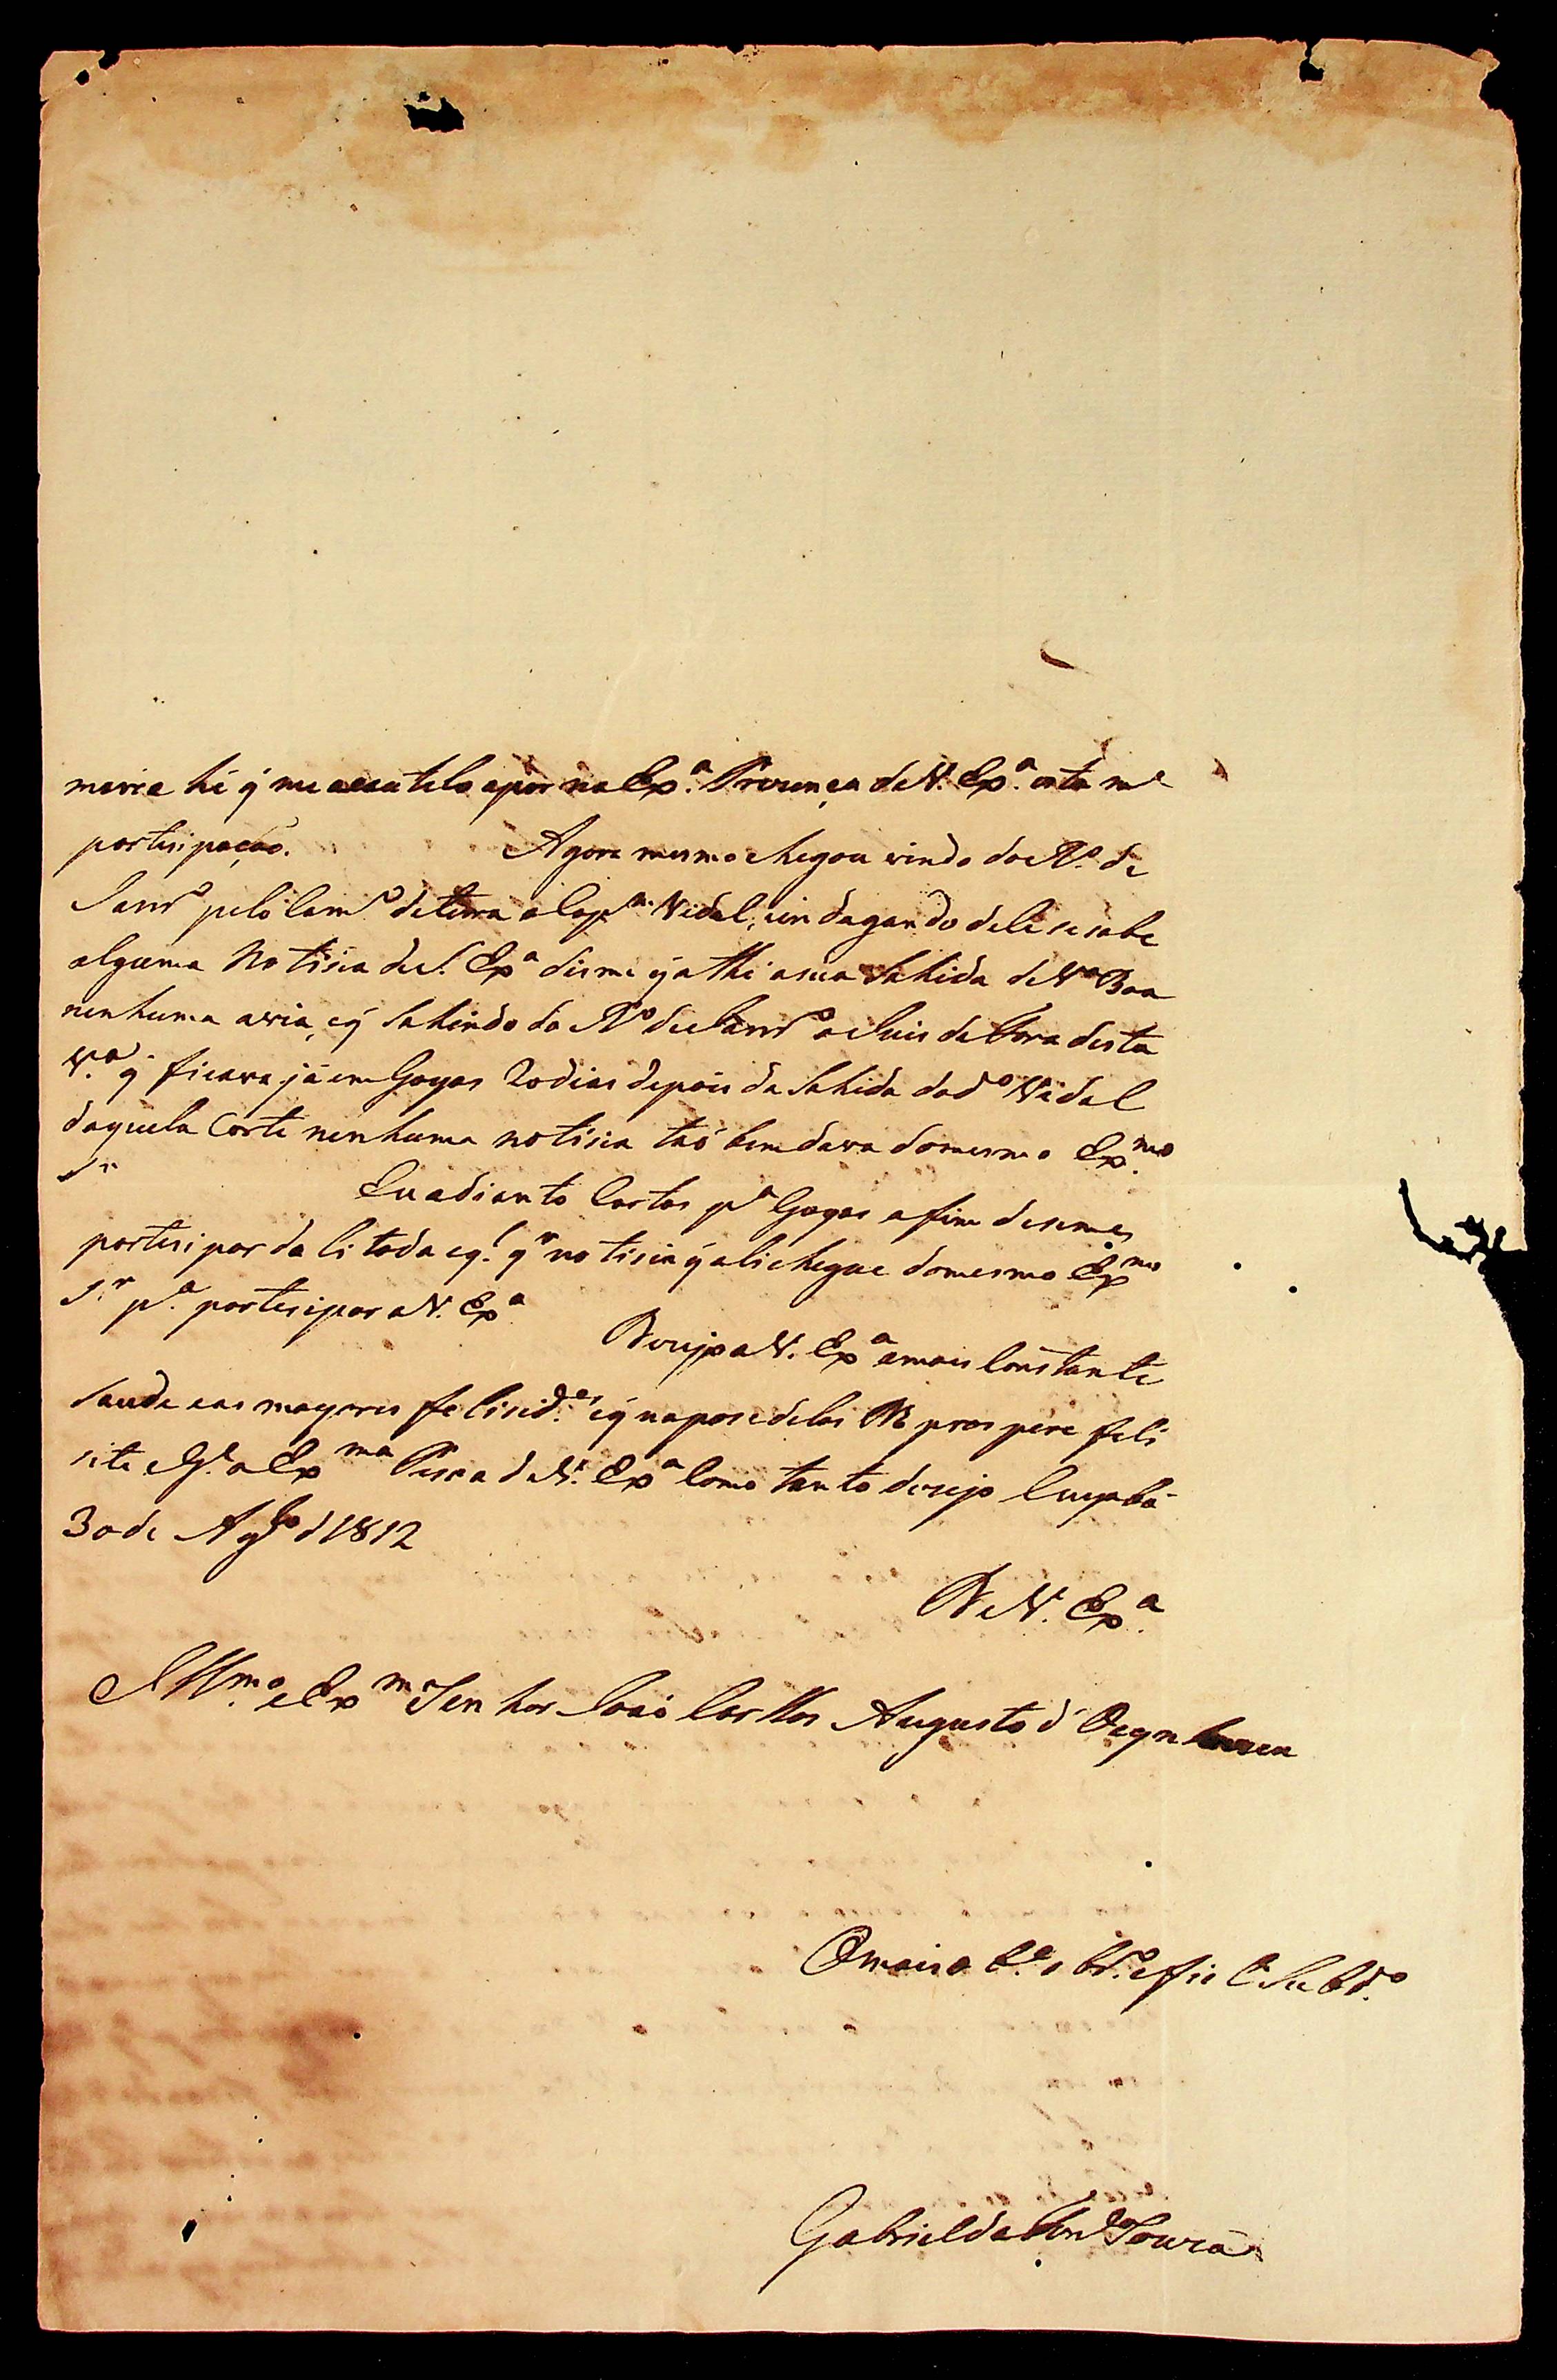 merce hé q̃ me acautelo apor na Exª. Prezença de V. Exª. esta mª
partisipação. Agora mesmo chegou vindo do Rº. de
Janrº pelo Camº. de terra o Capᵐ. Vidal, indagando dele se sabe
alguma Notisia de S. Exª disme q̃ athé a sua Sahida de Vª Boa
nenhuma avia, e q̃ Sahindo do Rº de Janrº o Luis de Tora desta
Vª. q̃ ficava já em Goyas 20 dias depois da Sahida do dº Vidal
daquela Corte nenhuma notisia taõ bem dava do mesmo Exᵐᵒ.
Sr
Eu adianto Cartas pª Goyas afim de se me
partisipar da li toda e q.ˡ q.ʳ notisia q̃ ali chegue do mesmo Exᵐᵒ
Sʳ pª. partisipar a V. Exª.
Dezejo a V. Exª a mais Constante
Saude e as mayores felisidᵉˢ. e q̃ na pose delas Ds prospere feli
site e Gᵈᵉ. a Exᵐᵃ Pesoa de V. Exª Como tanto desejo Cuyabá
30 de Agᵗᵒ d 1812
De V. Exª.
Illᵐᵒ. e Exᵐ Senhor Joaõ Carllos Augusto d' Oeynhausen
O mais obr.º e fiel Subdº.
Gabriel da Souza